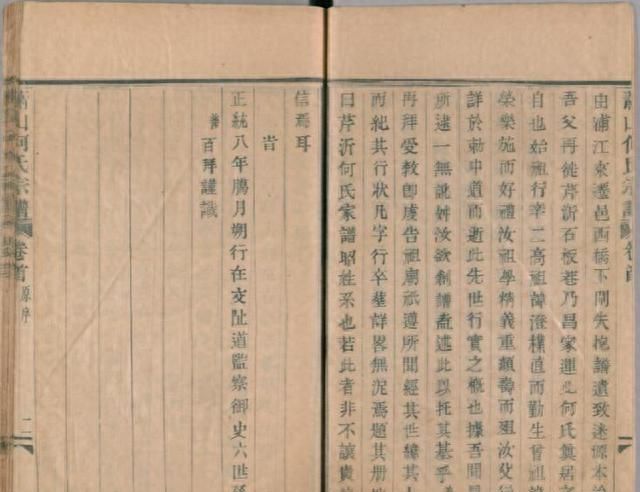 蕭山何氏宗譜 卷首
由浦江來遷邑西橋下閘失掉譜遺致迷源本
吾父再徙芹沂石板巷乃昌家運是何氏奠居
自也始祖行辛二高祖諱澄樸直而勤生曾祖
榮樂施而好禮汝祖學精義重頗壽而殂汝父行
詳於勅中道而逝此先世行實之概也據吾聞
所逮一無訛舛汝欲創譜盍述此以托其基乎
再拜受教卽虔告祖廟祇遵所聞經其世緯其
而紀其行狀凡字行卒墓詳畧無泥焉題其册
曰芹沂何氏家譜昭姓系也若此者非不讓貴
信焉耳
旹
正統八年臘月朔行在交阯道監察御史六世孫
善百拜謹識
蕭山何氏宗譜 卷首 原序 二